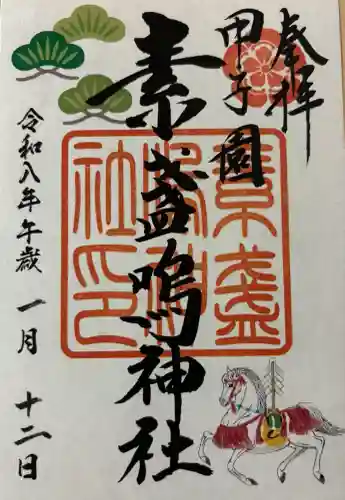 奉拝
甲子園
素盞嗚神社
素盞嗚神社印
令和八年午歳 一月 十二日